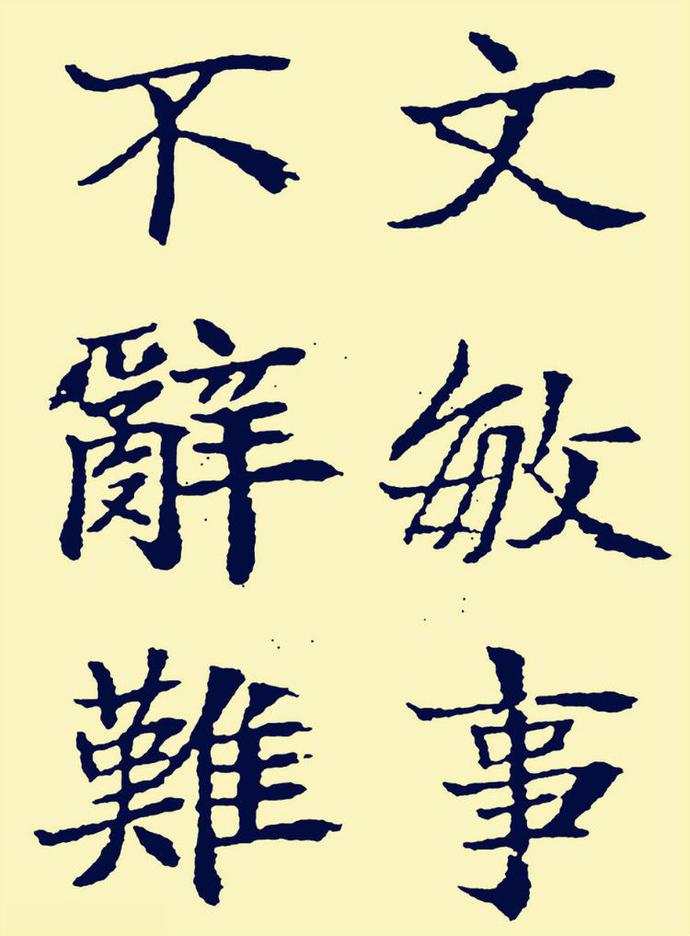 文敏事
不辭難